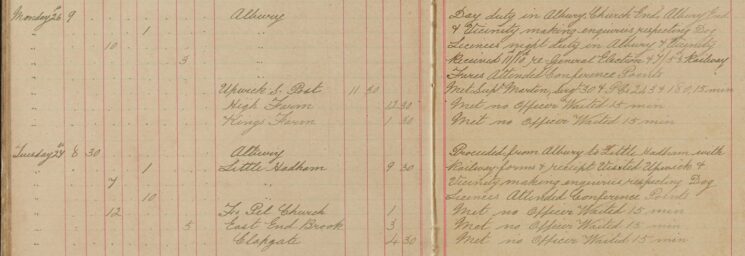 Monday 26 9 Albury Day duty in Albury, Church End, Albury End
" 1 " & Vicinity making enquiries respecting Dog
" 10 " Licences night duty in Albury & Vicinity
" 3 " Received 11/10 re General Election & 4/5 Railway
" Fares Attended Conference Points
" Upwick S. Post 11 30 Met Supt Martin, Sergt 30 & PCs 263 & 180, 15 min
" High Farm 12 30 Met no Officer Waited 15 min
" Kings Farm 1 30 Met no Officer Waited 15 min
Tuesday 27 8 30 Albury Proceeded from Albury to Little Hadham with
" 1 Little Hadham 9 30 Railway forms & receipt Visited Upwick &
" 7 " Vicinity making enquiries respecting Dog
" 10 " Licences Attended Conference Points
" 12 Fs Pel Church 1 Met no Officer Waited 15 min
" 5 East End Brook 3 Met no Officer Waited 15 min
" Clapgate 4 30 Met no Officer Waited 15 min